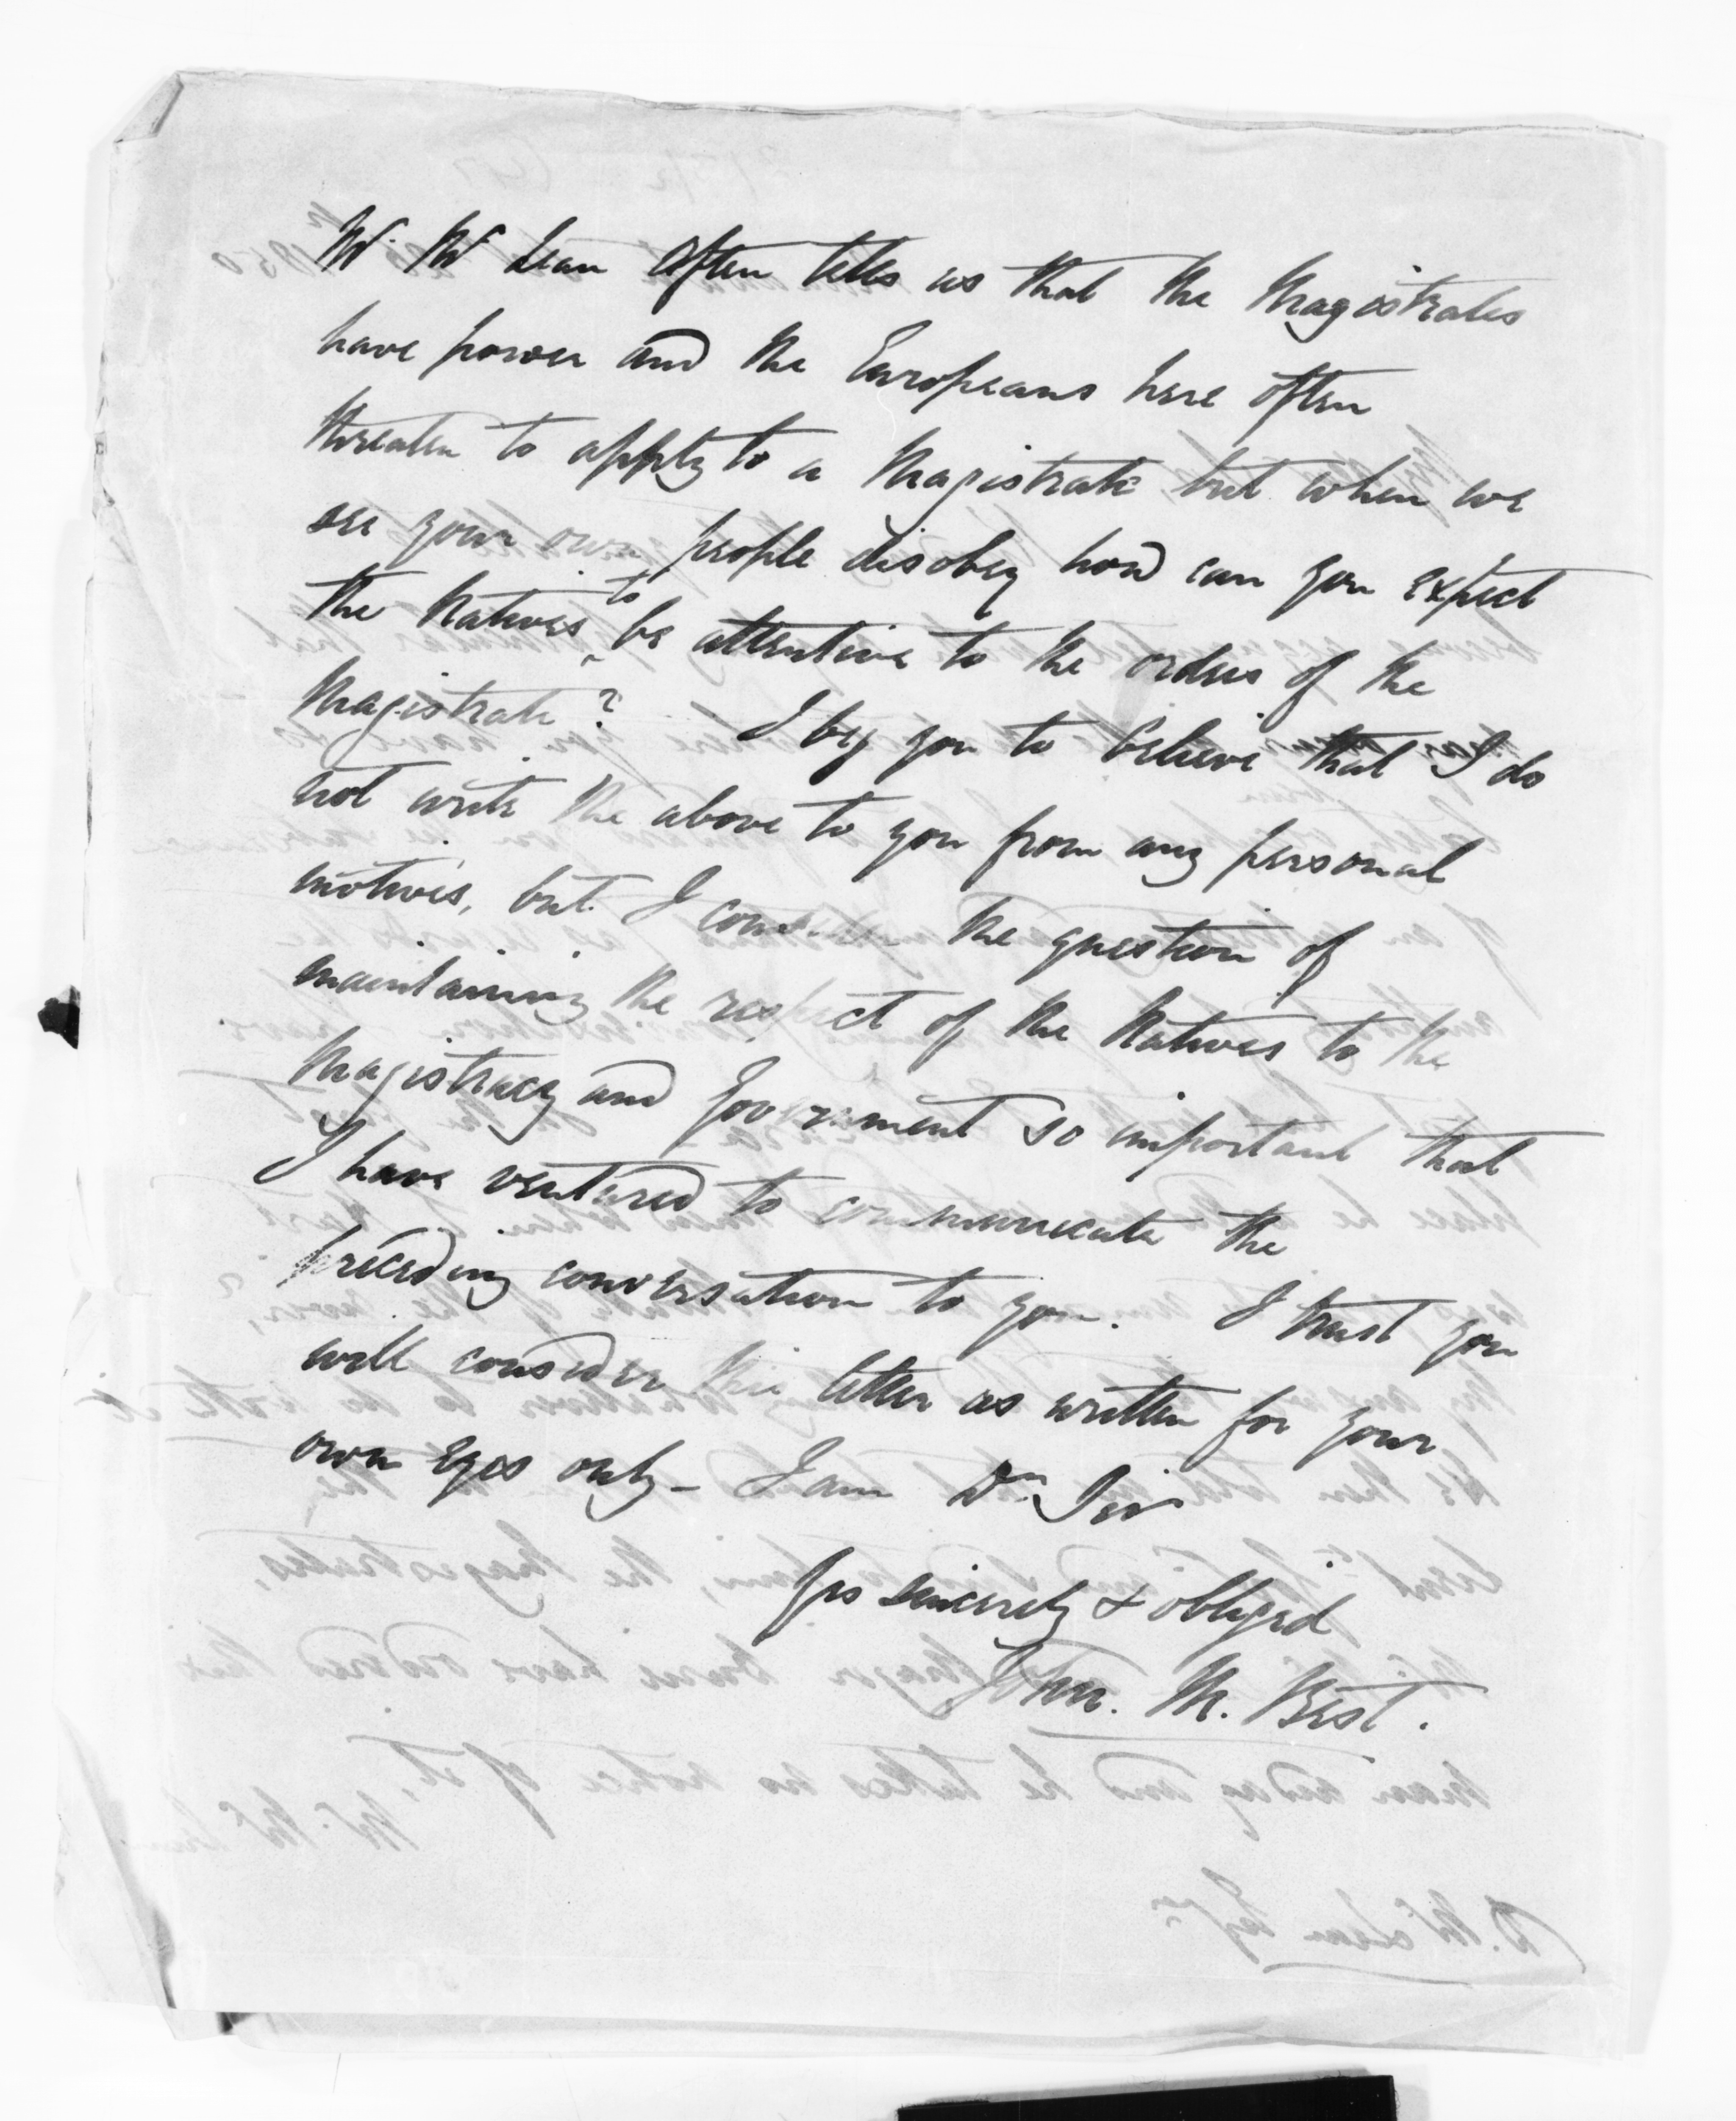 Mr. McLean often tells us that the Magistrates
have power and the Europeans here often
threaten to apply to a Magistrate but when we
see your own people disobey how can you expect
the Natives to be attentive to the orders of the
Magistrate? I beg you to believe that I do
not write the above to you from any personal
motives, but I consider the question of
maintaining the respect of the Natives to the
Magistracy and Government so important that
I have ventured to communicate the
preceding conversation to you. I trust you
will consider this letter as written for your
own Eyes only – I am Dr Sir
Yrs sincerely & obliged
John. M. Best.